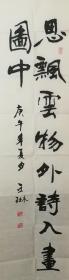 思飄雲物外詩入畫
圖中
庚午年夏月